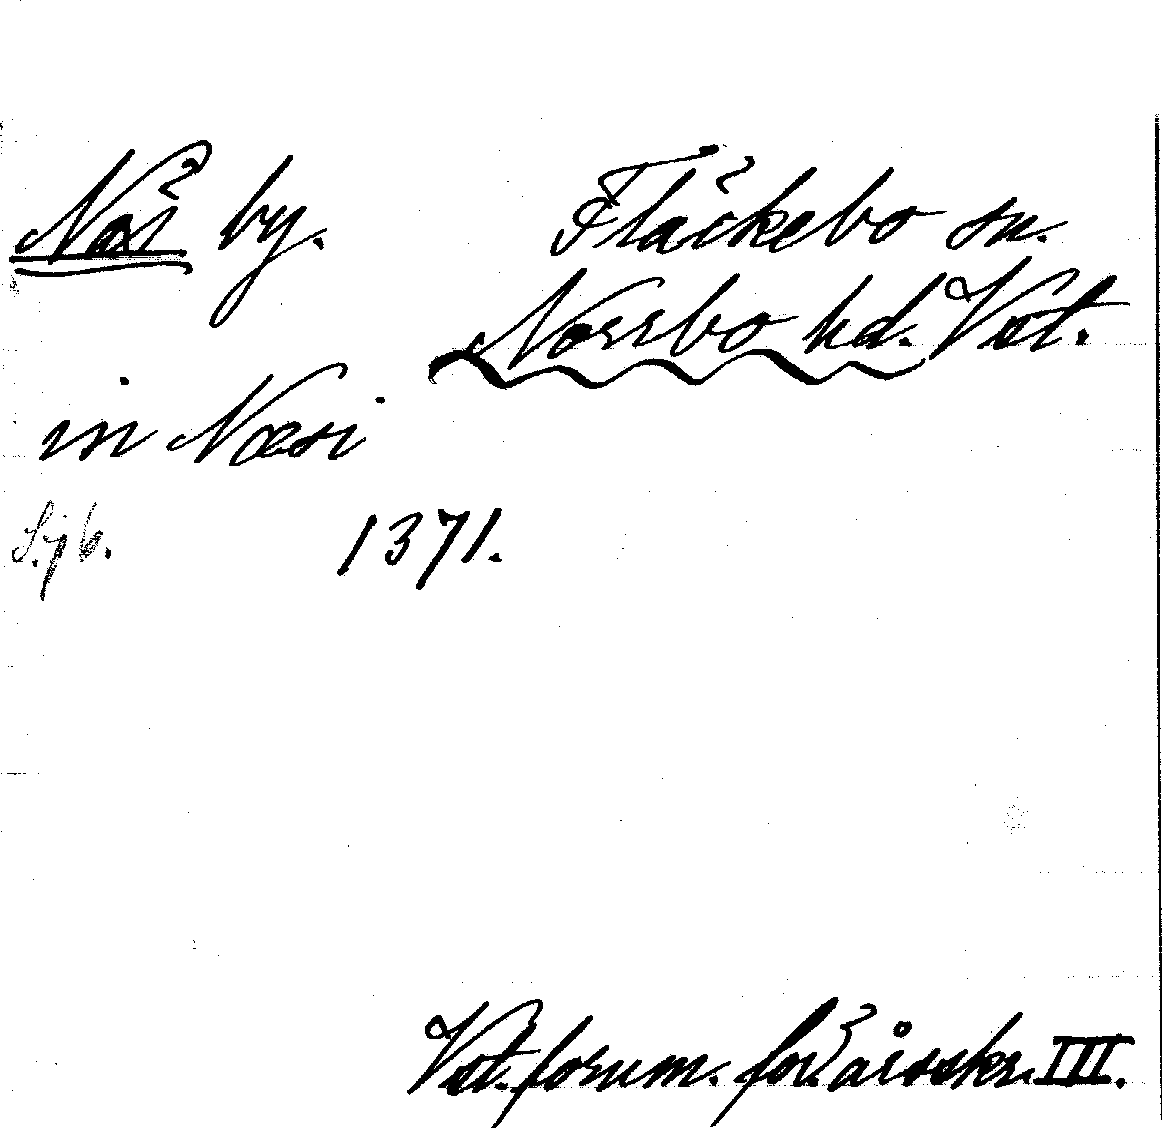 Näs by. Fläckebo sn.
Norrbo hd. Vst.
in Næsi
S. 76. 1371.
Vst. fornm. för. årsskr. III.